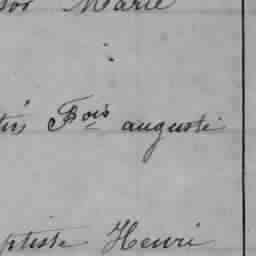 Marie
Fois auguste
ptiste Henri